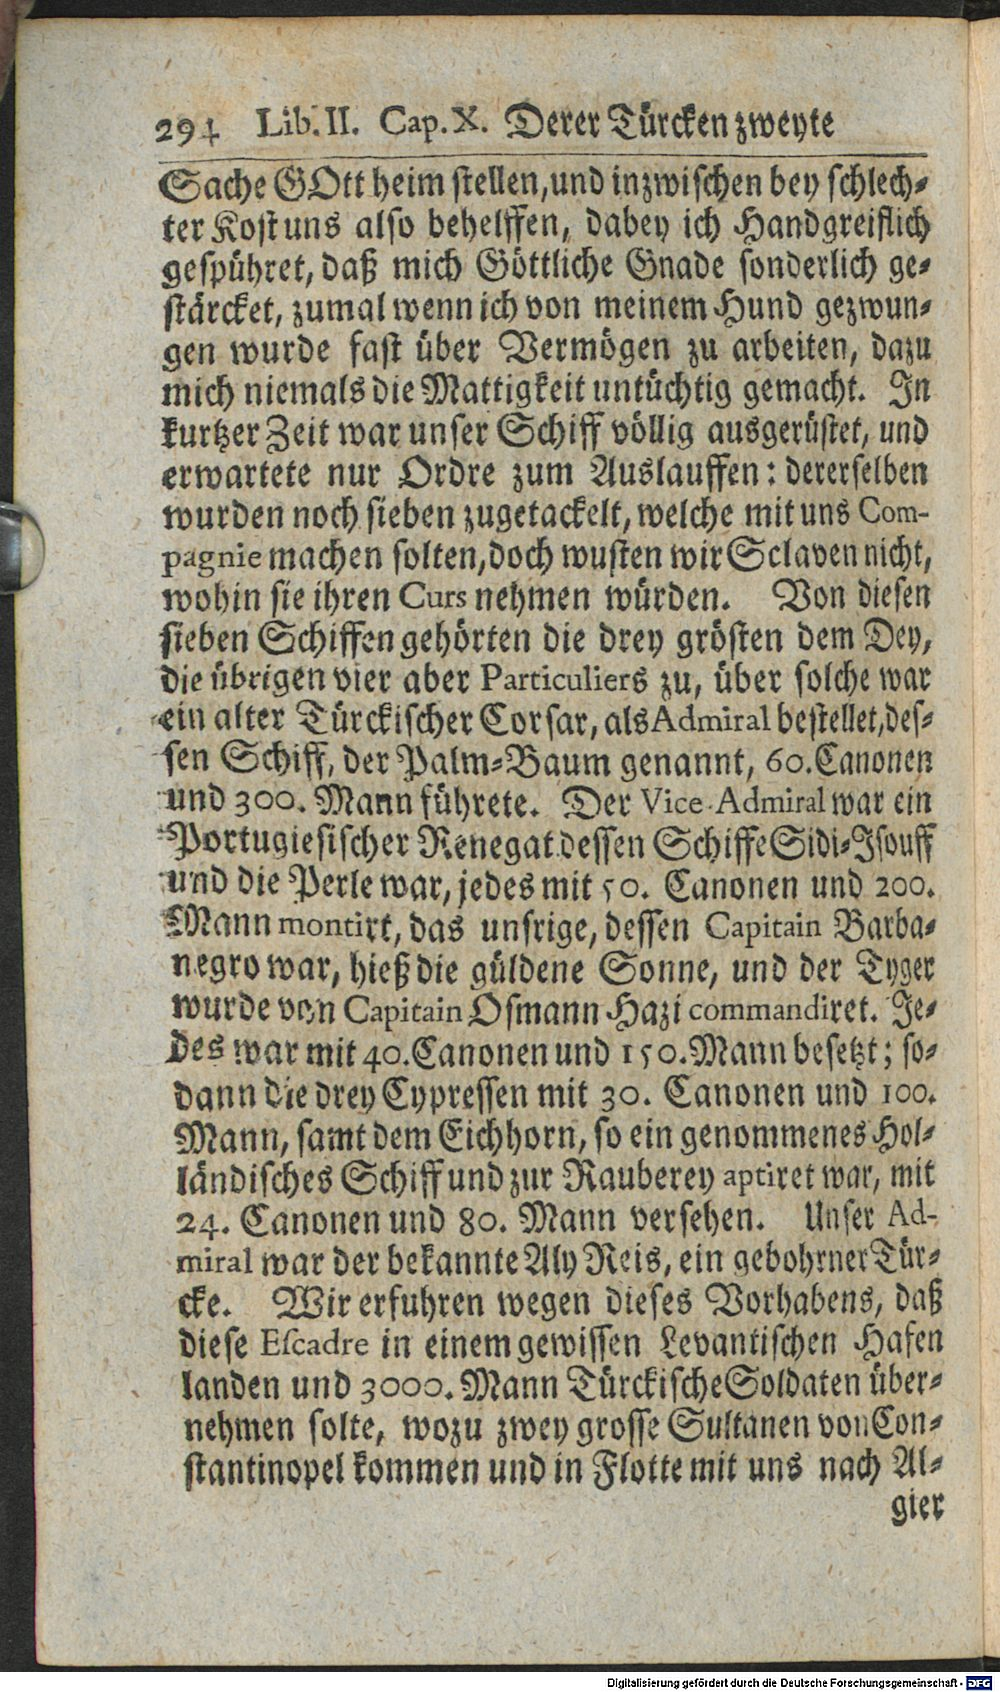 294 Lib. II. Cap. X. Derer Türcken zweyte
Sache GOtt heim stellen, und inzwischen bey schlech-
ter Kost uns also behelffen, dabey ich Handgreiflich
gespühret, daß mich Göttliche Gnade sonderlich ge-
stärcket, zumal wenn ich von meinem Hund gezwun-
gen wurde fast über Vermögen zu arbeiten, dazu
mich niemals die Mattigkeit untüchtig gemacht. In
kurtzer Zeit war unser Schiff völlig ausgerüstet, und
erwartete nur Ordre zum Auslauffen: dererselben
wurden noch sieben zugetackelt, welche mit uns Com-
pagnie machen solten, doch wusten wir Sclaven nicht,
wohin sie ihren Curs nehmen würden. Von diesen
sieben Schiffen gehörten die drey grösten dem Dey,
die übrigen vier aber Particuliers zu, über solche war
ein alter Türckischer Corsar, als Admiral bestellet, des-
sen Schiff, der Palm-Baum genannt, 60. Canonen
und 300. Mann führete. Der Vice-Admiral war ein
Portugiesischer Renegat dessen Schiffe Sidi-Isouff
und die Perle war, jedes mit 50. Canonen und 200.
Mann montirt, das unsrige, dessen Capitain Barba-
negro war, hieß die güldene Sonne, und der Tyger
wurde von Capitain Osmann Hazi commandiret. Je-
des war mit 40. Canonen und 150. Mann besetzt; so-
dann die drey Cypressen mit 30. Canonen und 100.
Mann, samt dem Eichhorn, so ein genommenes Hol-
ländisches Schiff und zur Rauberey aptiret war, mit
24. Canonen und 80. Mann versehen. Unser Ad-
miral war der bekannte Aly Reis, ein gebohrner Tür-
cke. Wir erfuhren wegen dieses Vorhabens, daß
diese Escadre in einem gewissen Levantischen Hafen
landen und 3000. Mann Türckische Soldaten über-
nehmen solte, wozu zwey grosse Sultanen von Con-
stantinopel kommen und in Flotte mit uns nach Al-
gier
Digitalisierung gefördert durch die Deutsche Forschungsgemeinschaft - DFG